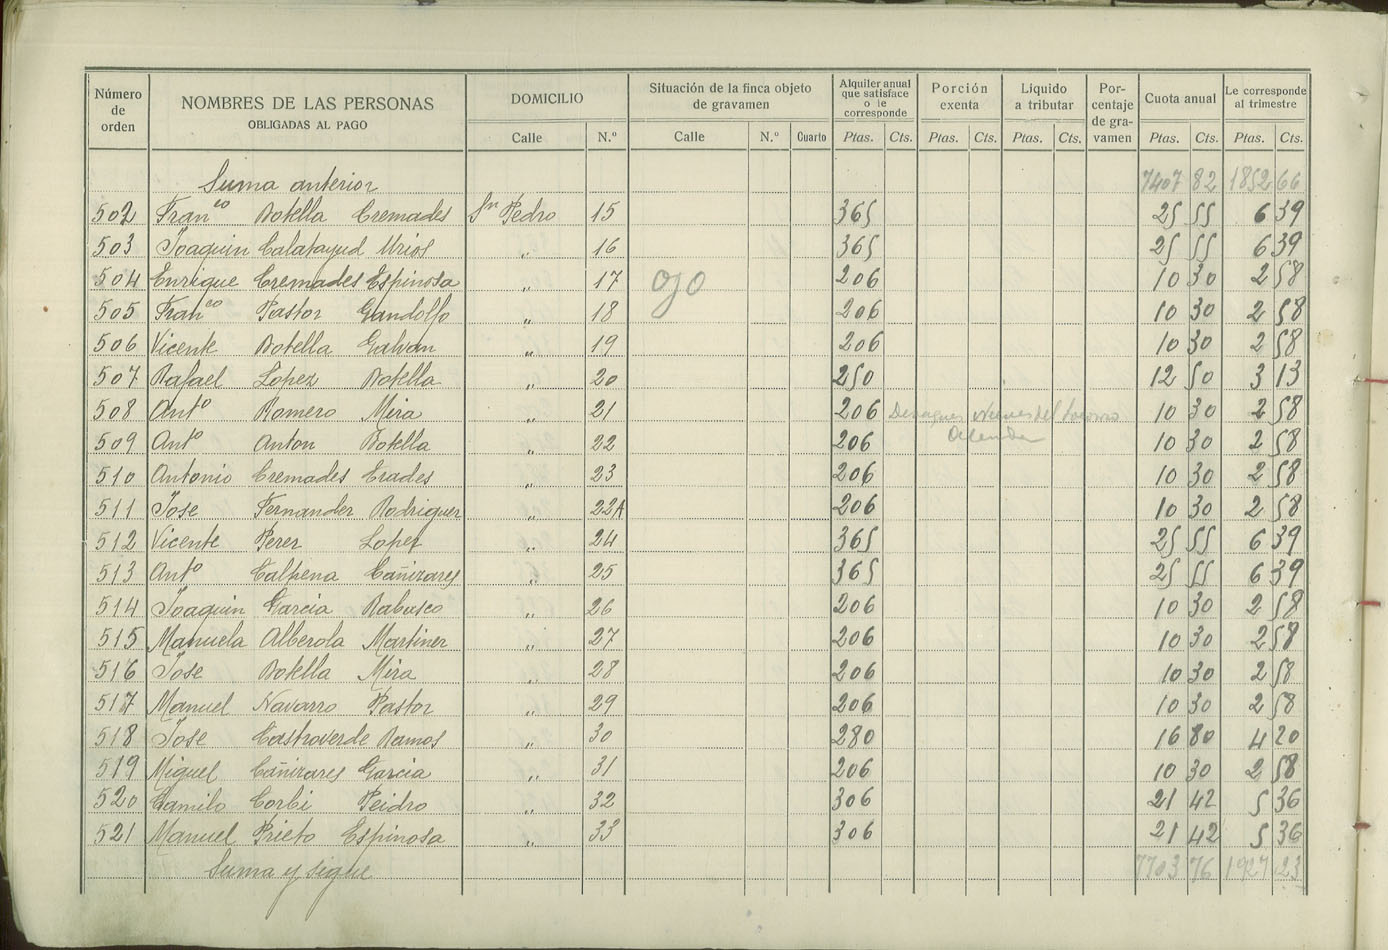 Número de orden NOMBRES DE LAS PERSONAS OBLIGADAS AL PAGO DOMICILIO Situación de la finca objeto de gravamen Alquiler anual que satisface o le corresponde Porción exenta Liquido a tributar Porcentaje de gravamen Cuota anual Le corresponde al trimestre
Calle N.º Calle N.º Cuarto Ptas. Cts. Ptas. Cts. Ptas. Cts. Ptas. Cts. Ptas. Cts.
Suma anterior 7407 82 1852 66
502 Franco Botella Cremades Sn Pedro 15 365 25 55 6 39
503 Joaquin Calatayud Urios " 16 365 25 55 6 39
504 Enrique Cremades Espinosa " 17 ojo 206 10 30 2 58
505 Franco Pastor Gandolfo " 18 206 10 30 2 58
506 Vicente Botella Galvan " 19 206 10 30 2 58
507 Rafael Lopez Botella " 20 250 12 50 3 13
508 Anto Romero Mira " 21 206 del 10 30 2 58
509 Anto Anton Botella " 22 206 10 30 2 58
510 Antonio Cremades Crades " 23 206 10 30 2 58
511 Jose Fernander Rodriguer " 22A 206 10 30 2 58
512 Vicente Perer Loper " 24 365 25 55 6 39
513 Anto Calpena Cañizares " 25 365 25 55 6 39
514 Joaquin Garcia Rabasco " 26 206 10 30 2 58
515 Manuela Alberola Martiner " 27 206 10 30 2 58
516 Jose Botella Mira " 28 206 10 30 2 58
517 Manuel Navarro Pastor " 29 206 10 30 2 58
518 Jose Castroverde Ramos " 30 280 16 80 4 20
519 Miguel Cañizares Garcia " 31 206 10 30 2 58
520 Camilo Corbi Peidro " 32 306 21 42 5 36
521 Manuel Prieto Espinosa " 33 306 21 42 5 36
Suma y sigue 7703 76 1927 23